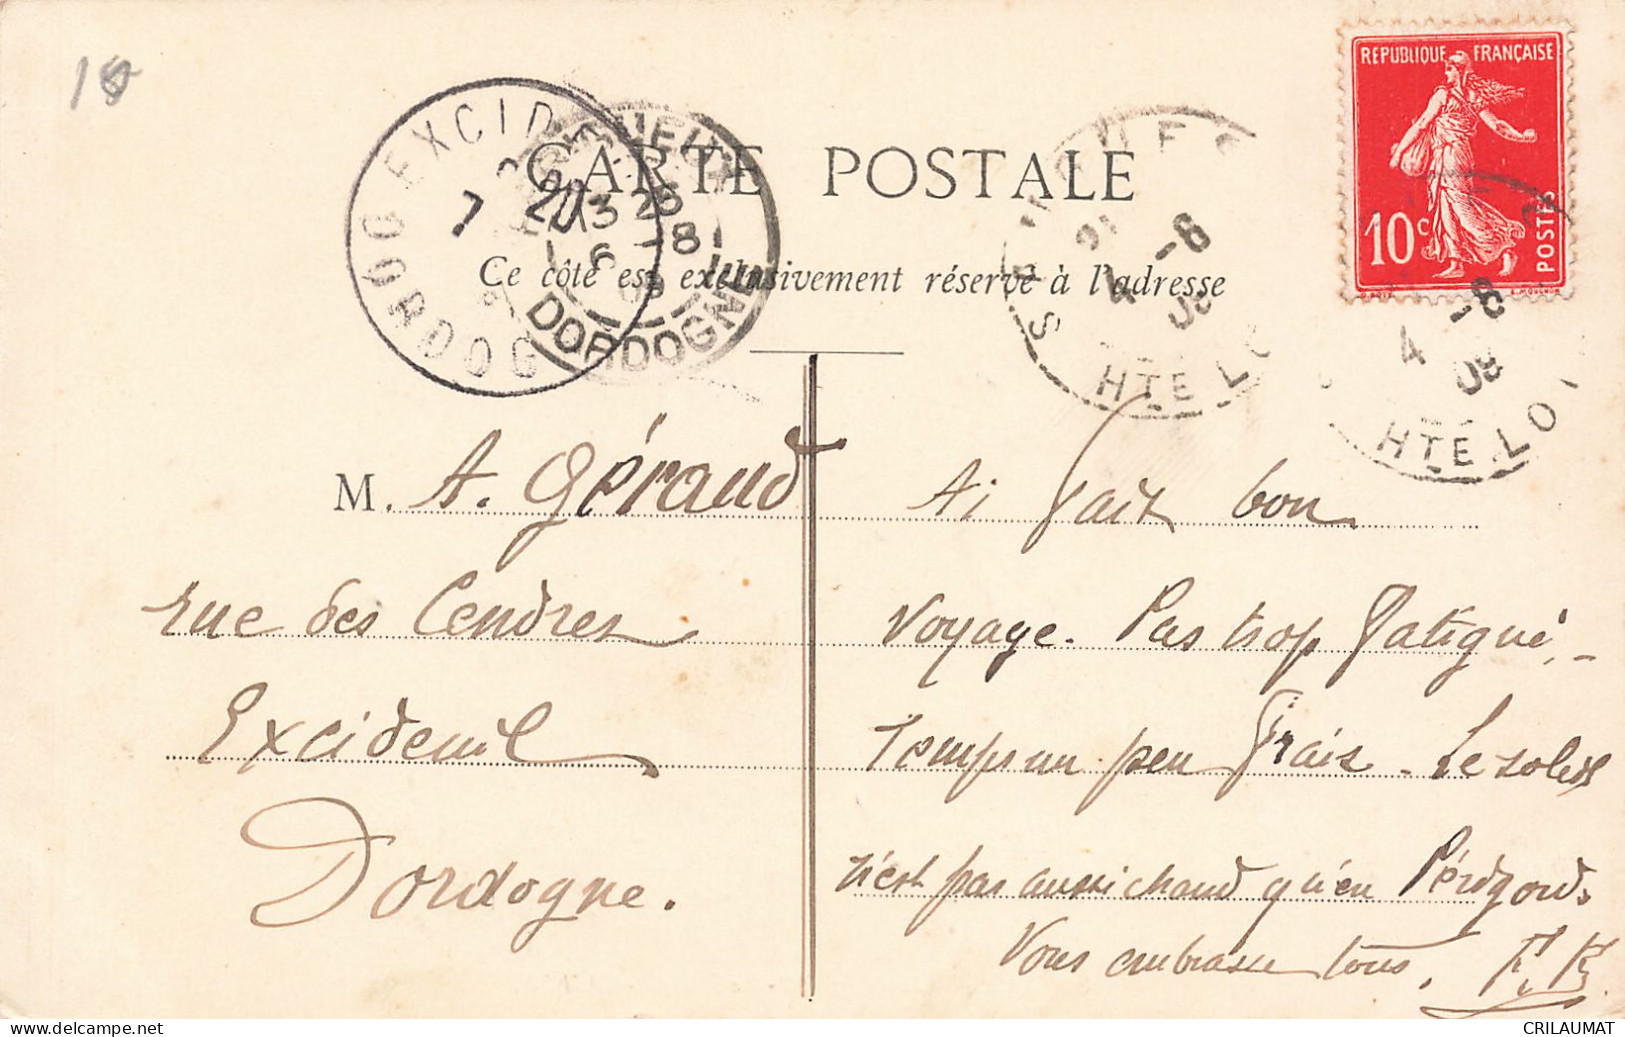 18
EXCIDE
DORDOG
7
20
13 25
6 -8
09
DORDOGNE
CARTE POSTALE
Ce côté est exclusivement réservé à l'adresse
-8
4 08
HTE LO
REPUBLIQUE FRANÇAISE
10c
POSTES
-8
4 08
HTE LOI
M. A. Géraud
rue des Cendres
Excideuil
Dordogne.
Ai fait bon
Voyage. Pas trop fatigué, -
Temps un peu frais - Le soleil
n'est pas aussi chaud qu'en Périgord.
Vous embrasse tous.
CRILAUMAT